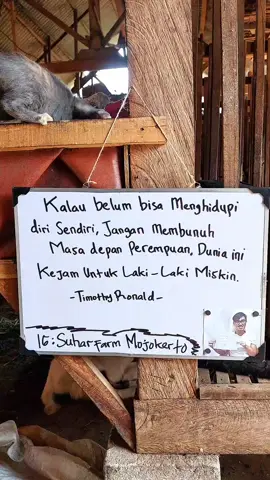 Kalau belum bisa Menghidupi
diri Sendiri, Jangan Membunuh
Masa depan Perempuan, Dunia ini
Kejam Untuk Laki-Laki Miskin.
-Timothy Ronald-
IG: Suhar Farm Mojokerto